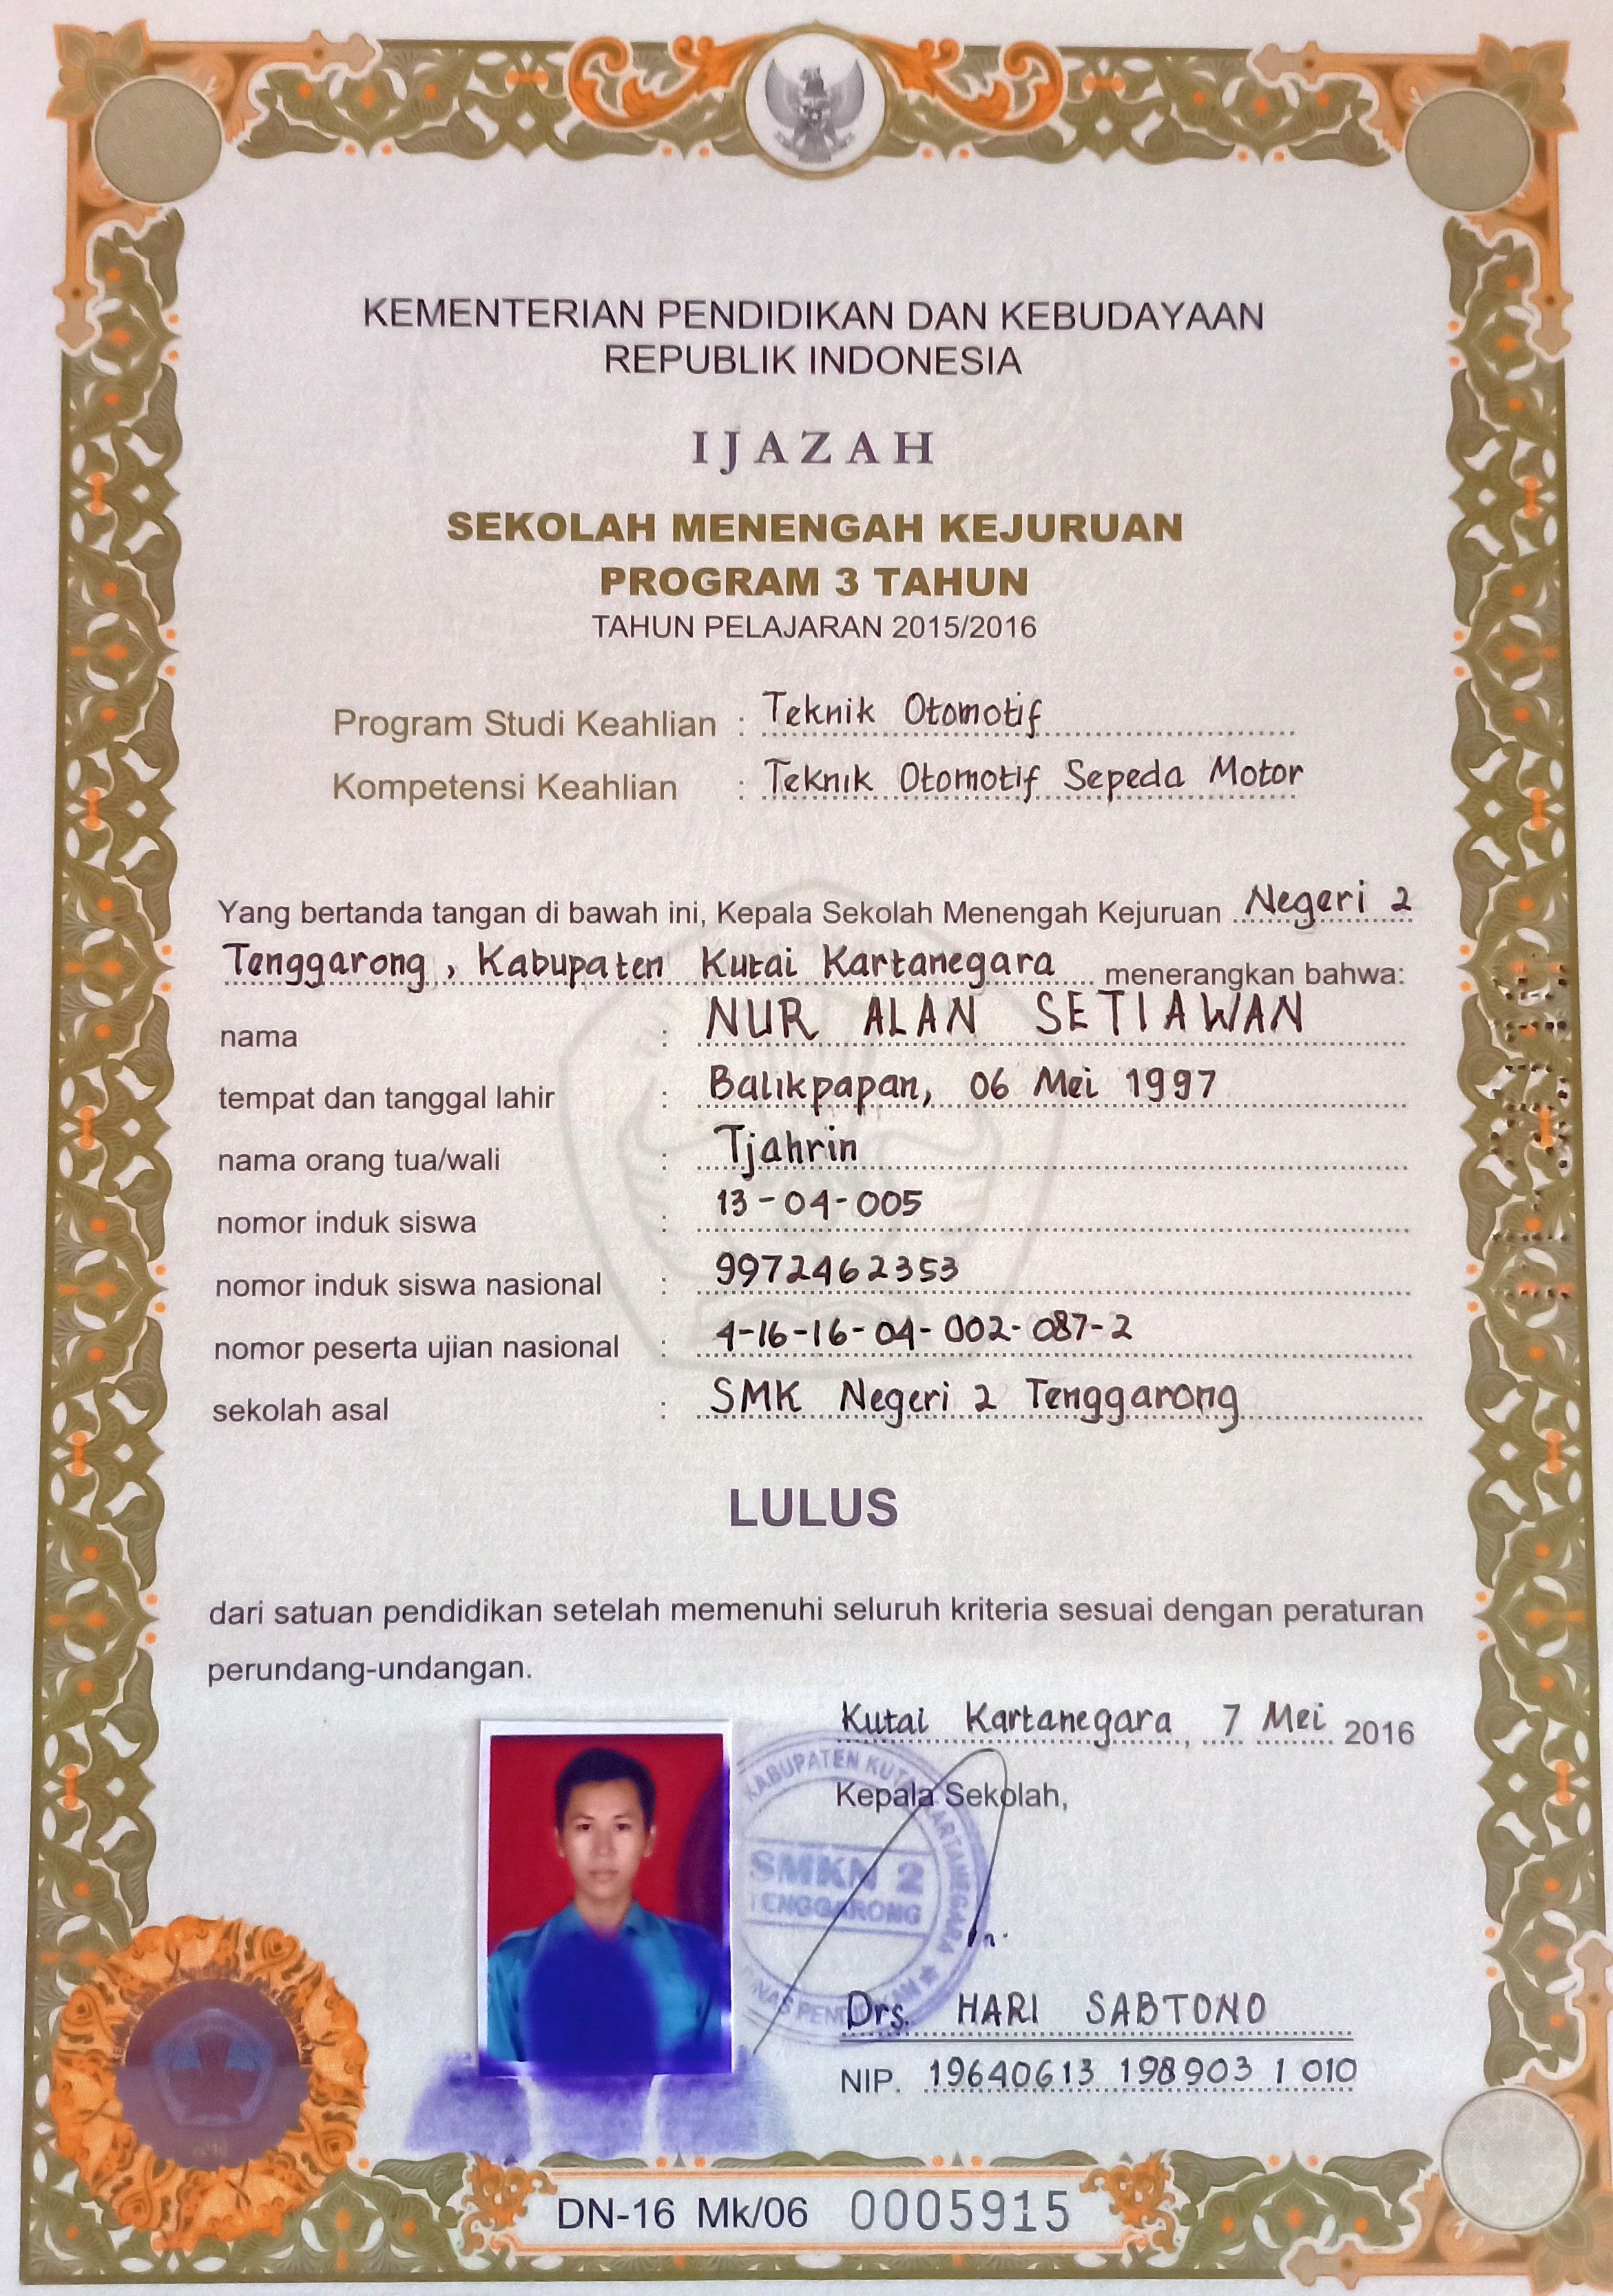 KEMENTERIAN PENDIDIKAN DAN KEBUDAYAAN
REPUBLIK INDONESIA
IJAZAH
SEKOLAH MENENGAH KEJURUAN
PROGRAM 3 TAHUN
TAHUN PELAJARAN 2015/2016
Program Studi Keahlian : Teknik Otomotif
Kompetensi Keahlian : Teknik Otomotif Sepeda Motor
Yang bertanda tangan di bawah ini, Kepala Sekolah Menengah Kejuruan Negeri 2
Tenggarong, Kabupaten Kutai Kartanegara menerangkan bahwa:
nama : NUR ALAN SETIAWAN
tempat dan tanggal lahir : Balikpapan, 06 Mei 1997
nama orang tua/wali : Tjahrin
nomor induk siswa : 13-04-005
nomor induk siswa nasional : 9972462353
nomor peserta ujian nasional : 4-16-16-04-002-087-2
sekolah asal : SMK Negeri 2 Tenggarong
LULUS
dari satuan pendidikan setelah memenuhi seluruh kriteria sesuai dengan peraturan
perundang-undangan.
Kutai Kartanegara, 7 Mei 2016
KABUPATEN KUTAI KARTANEGARA
Kepala Sekolah,
SMKN 2
TENGGARONG
PENDIDIKAN
Drs. HARI SABTONO
NIP. 19640613 198903 1 010
DN-16 Mk/06 0005915